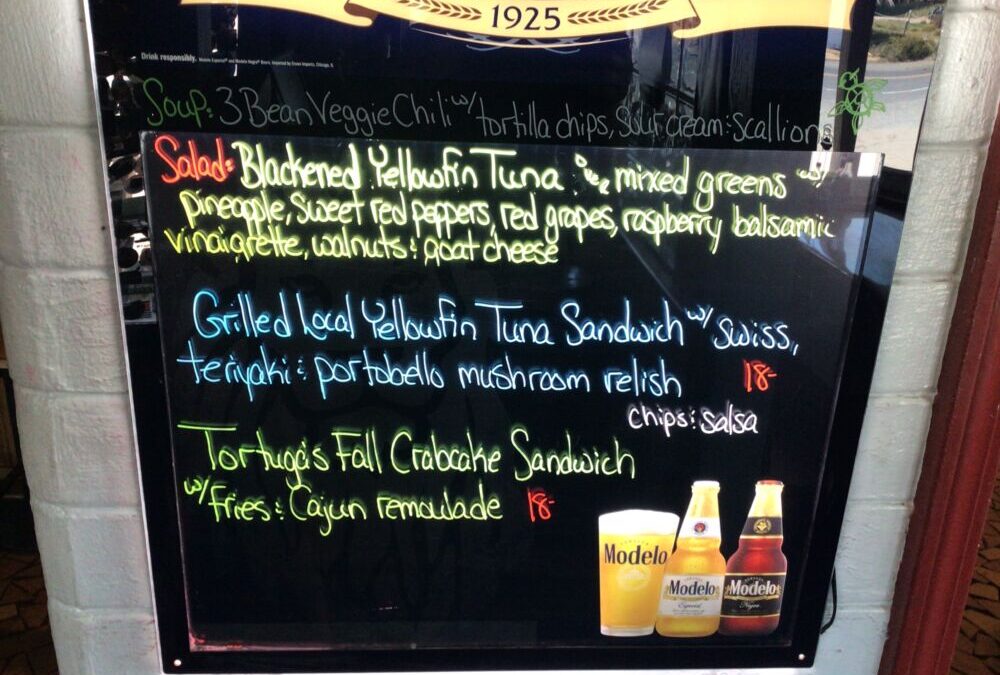 1925
Drink responsibly.
Soup: 3 Bean Veggie Chili w/ tortilla chips, sour cream & scallions
Salad: Blackened Yellowfin Tuna mixed greens w/
pineapple, sweet red peppers, red grapes, raspberry balsamic
vinaigrette, walnuts & goat cheese
Grilled Local Yellowfin Tuna Sandwich w/ swiss,
teriyaki & portobello mushroom relish 18-
chips & salsa
Tortuga's Fall Crabcake Sandwich
w/ fries & Cajun remoulade 18-
Modelo
Modelo
Especial
Modelo
Negra